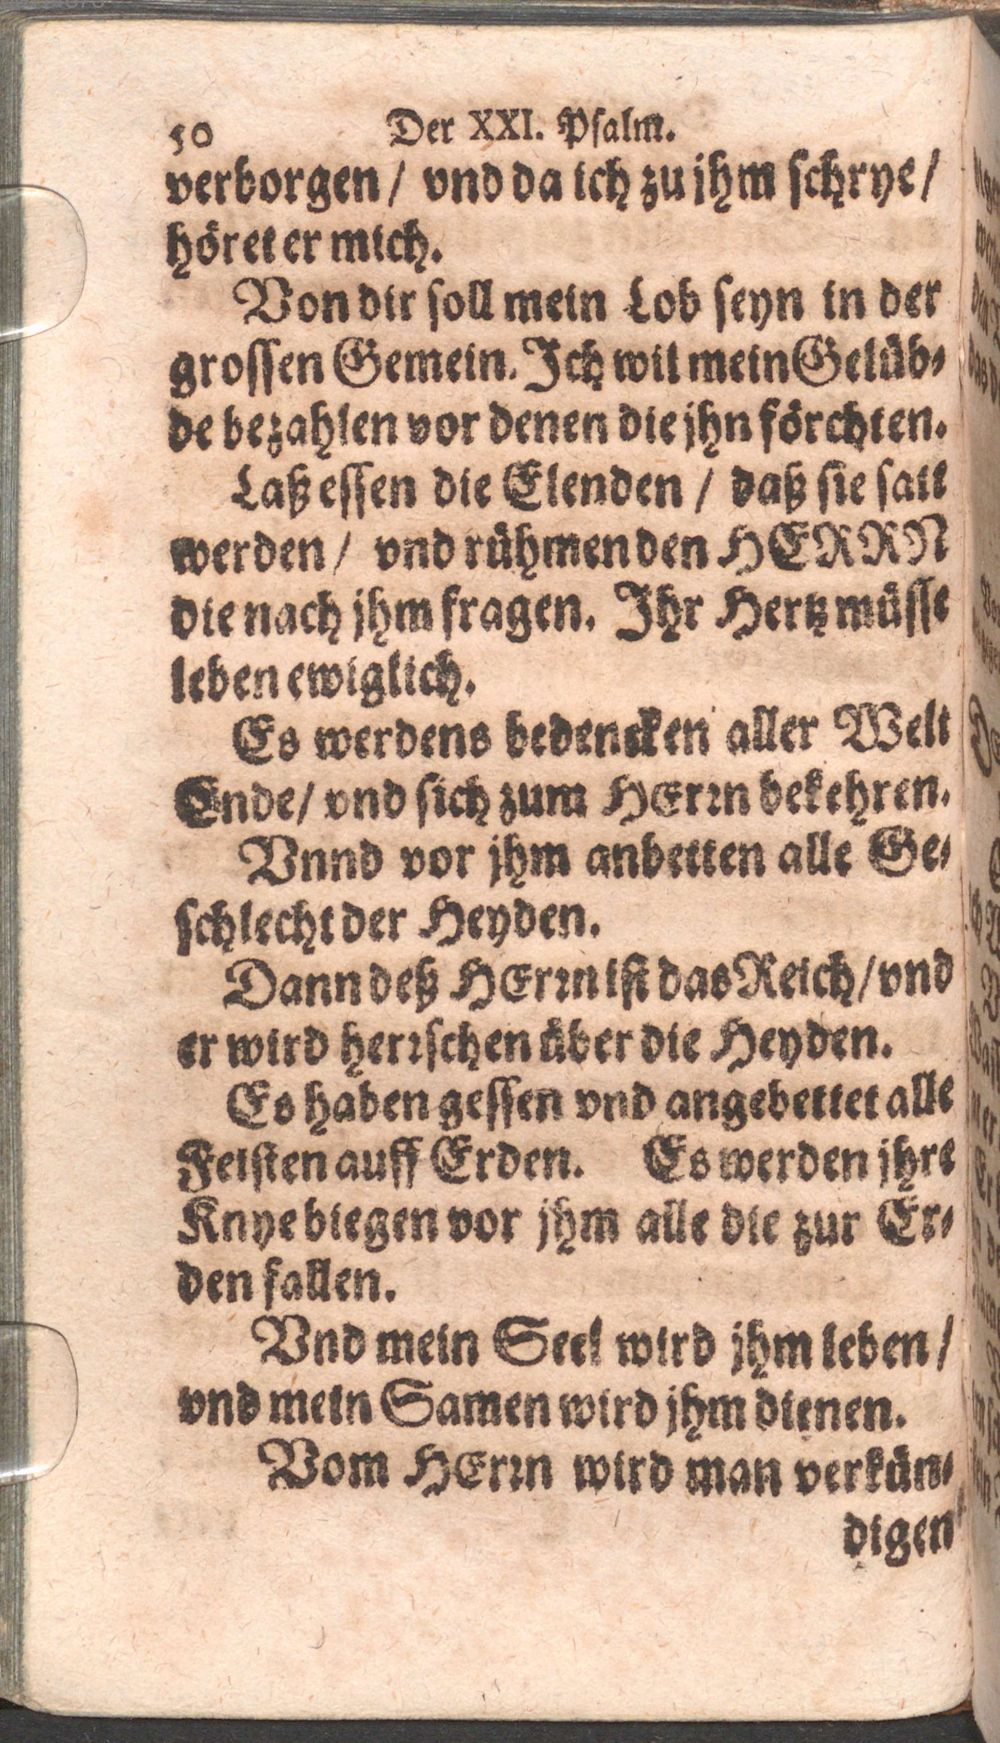 50 Der XXI. Psalm.
verborgen / vnd da ich zu jhm schrye /
höret er mich.
Von dir soll mein Lob seyn in der
grossen Gemein. Ich wil mein Gelüb-
de bezahlen vor denen die jhn förchten.
Laß essen die Elenden / daß sie satt
werden / vnd rühmen den HERRN
die nach jhm fragen. Ihr Hertz müsse
leben ewiglich.
Es werdens bedencken aller Welt
Ende / vnd sich zum HErrn bekehren.
Vnnd vor jhm anbetten alle Ge-
schlecht der Heyden.
Dann deß HErrn ist das Reich / vnd
er wird herrschen über die Heyden.
Es haben gessen vnd angebettet alle
Feisten auff Erden. Es werden jhre
Knye biegen vor jhm alle die zur Er-
den fallen.
Vnd mein Seel wird jhm leben /
vnd mein Samen wird jhm dienen.
Vom HErrn wird man verkün-
digen